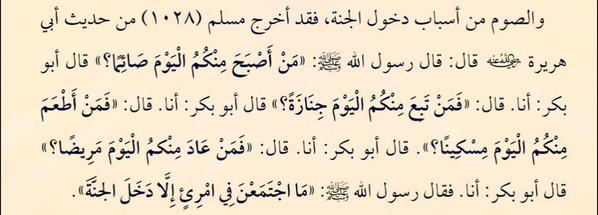 والصوم من أسباب دخول الجنة، فقد أخرج مسلم (١٠٢٨) من حديث أبي
هريرة رضي الله عنه قال: قال رسول الله ﷺ: «مَنْ أَصْبَحَ مِنْكُمُ الْيَوْمَ صَائِمًا؟» قال أبو
بكر: أنا. قال: «فَمَنْ تَبِعَ مِنْكُمُ الْيَوْمَ جِنَازَةً؟» قال أبو بكر: أنا. قال: «فَمَنْ أَطْعَمَ
مِنْكُمُ الْيَوْمَ مِسْكِينًا؟». قال أبو بكر: أنا. قال: «فَمَنْ عَادَ مِنْكمُ الْيَوْمَ مَرِيضًا؟»
قال أبو بكر: أنا. فقال رسول الله ﷺ: «مَا اجْتَمَعْنَ فِي امْرِئٍ إِلَّا دَخَلَ الجنَّةَ».